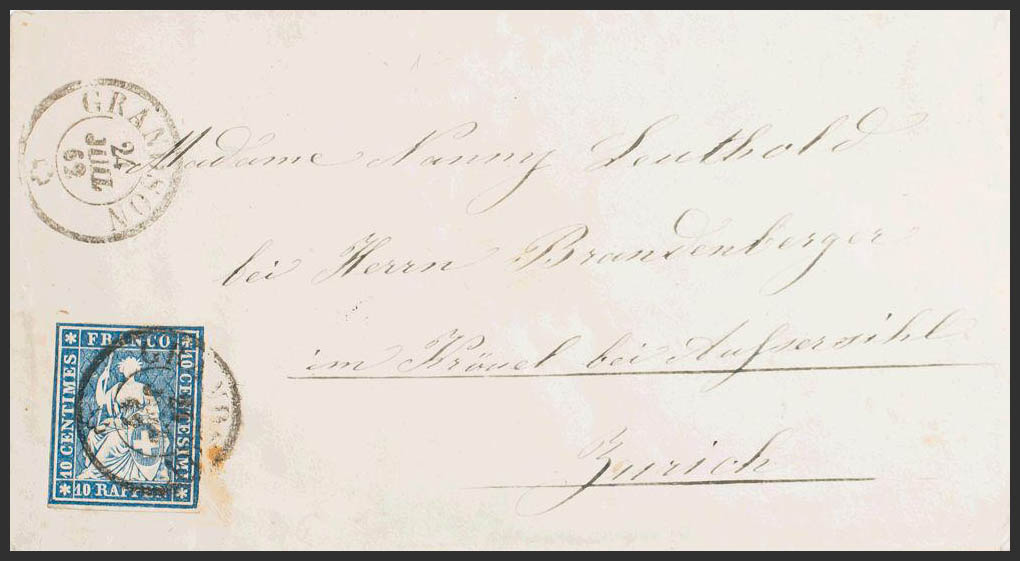 GRANDSON
24
JUIL
63
Madame Nanny Leuthold
bei Herrn Brandenberger
im Kräuel bei Aussersihl
Zürich
FRANCO
10 CENTIMES
10 CENTESIMI
10 RAPPEN